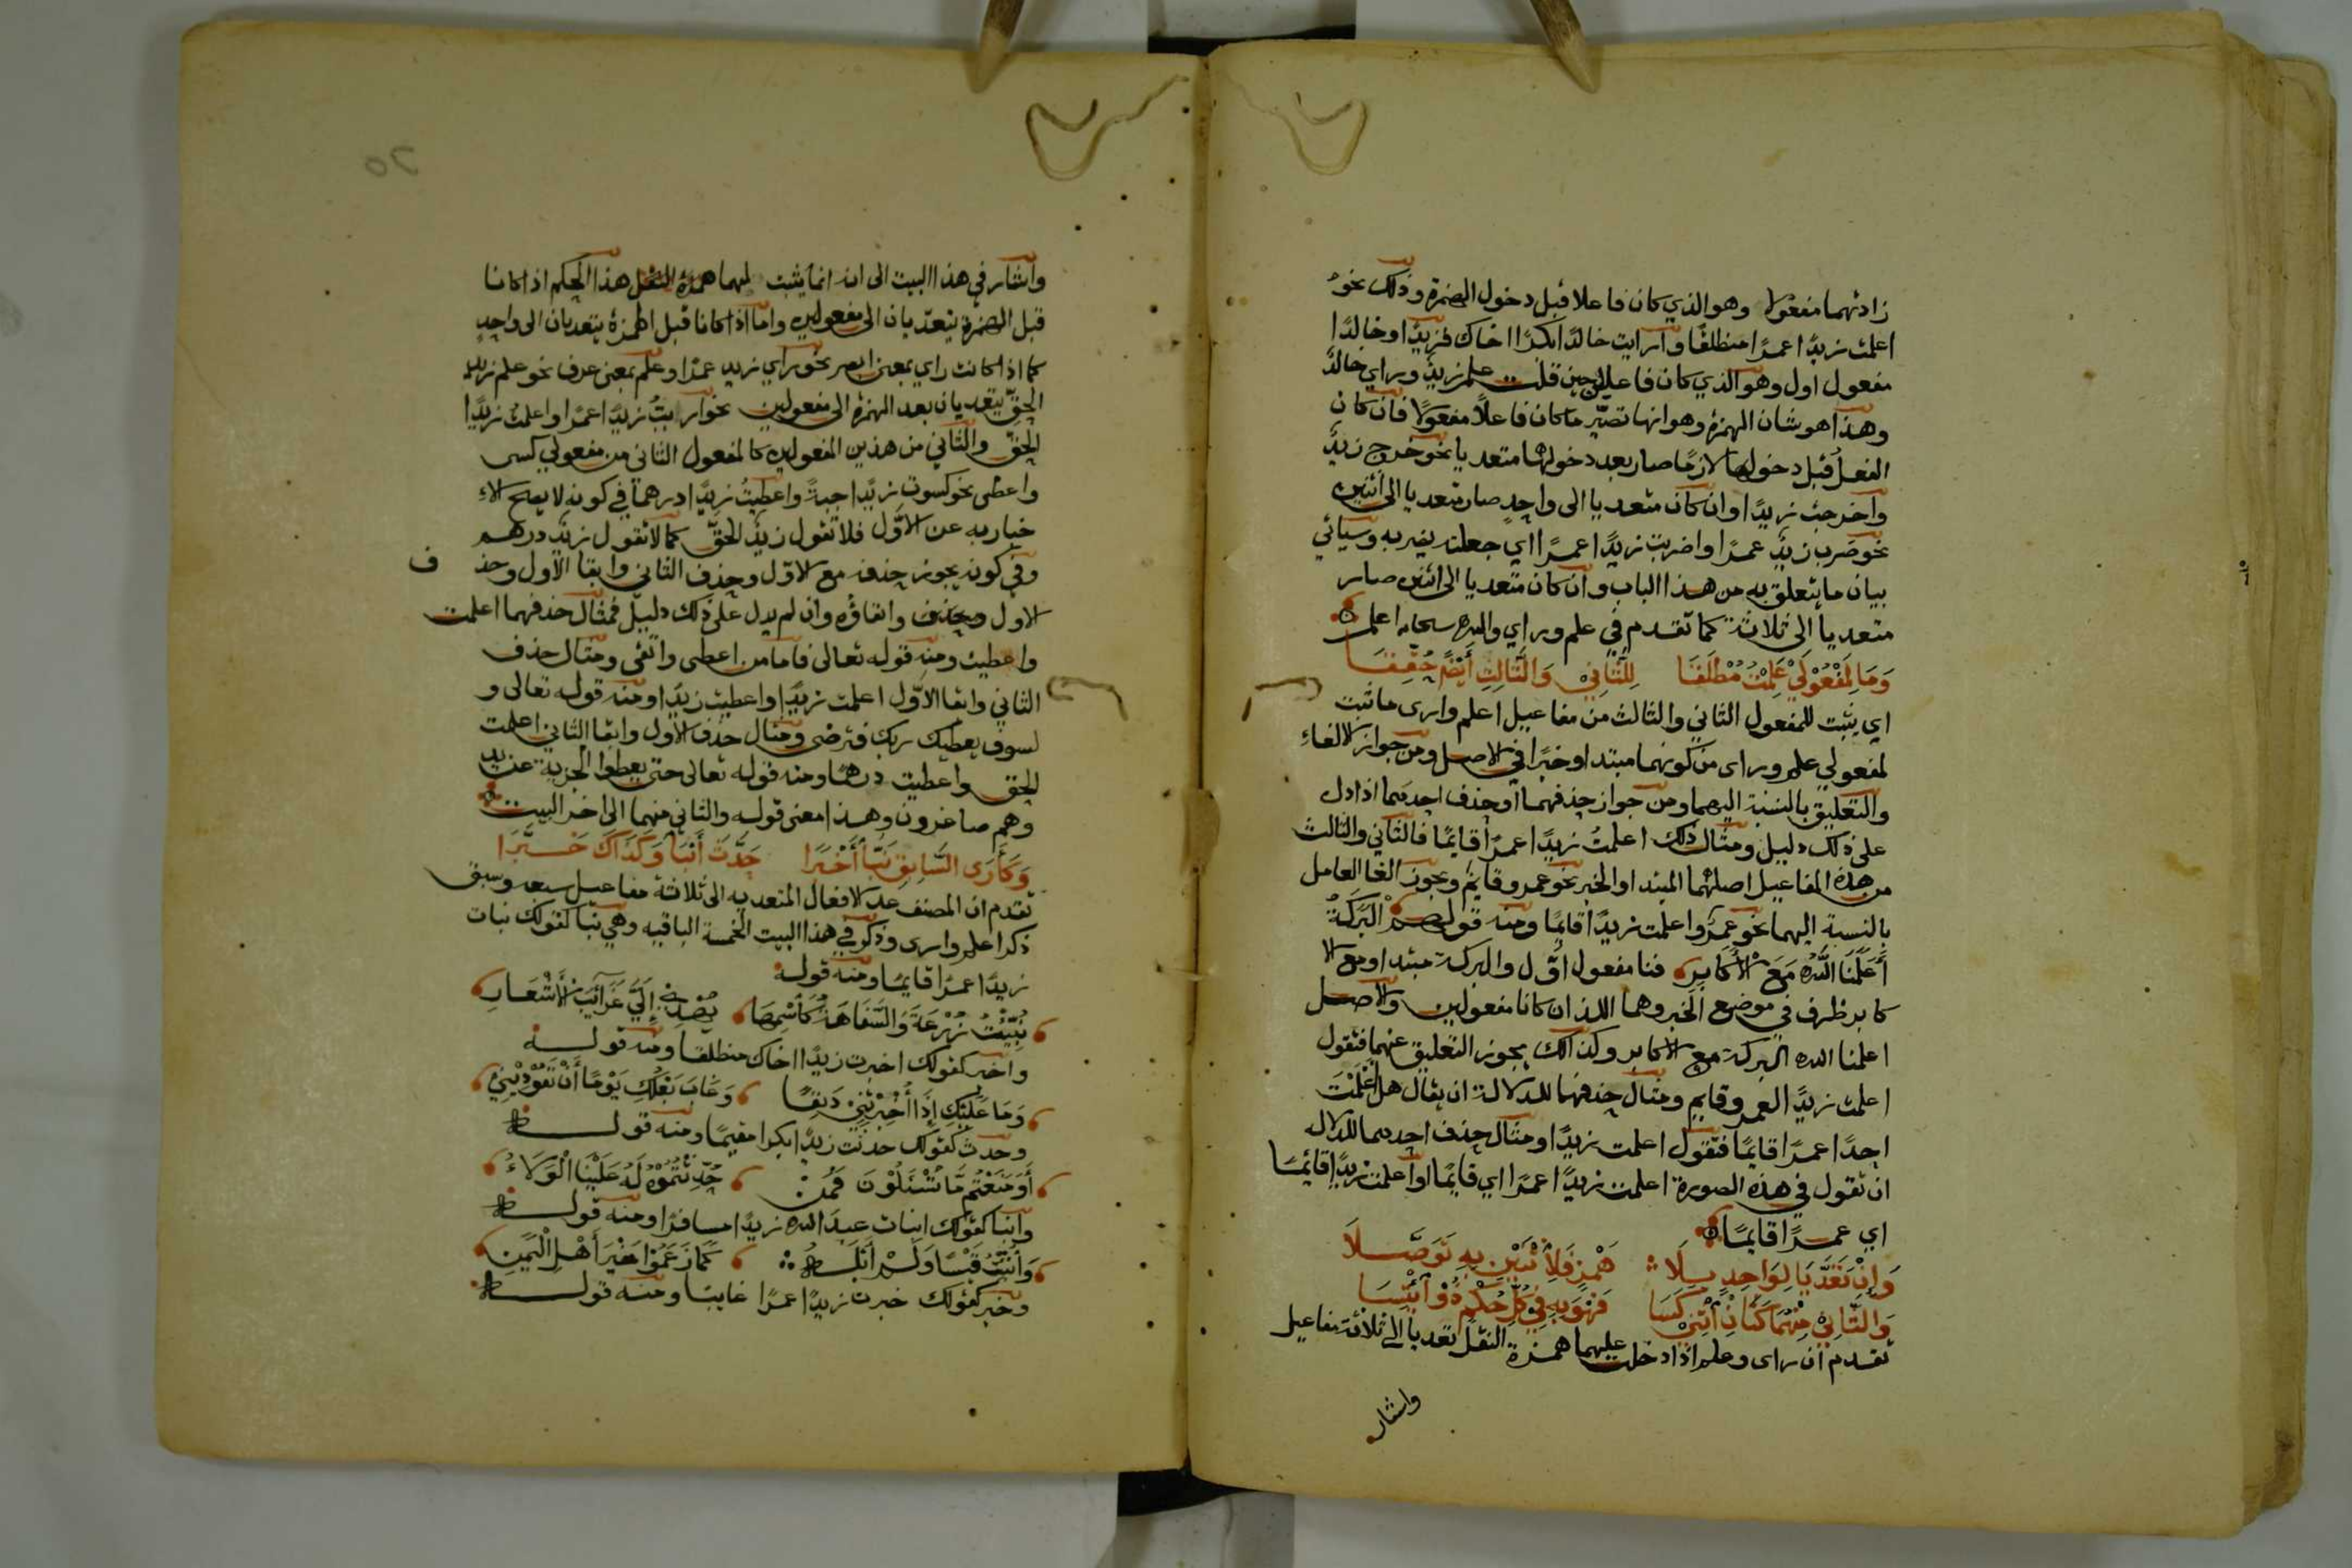 زادتهما مفعولا وهو الذي كان فاعلا قبل دخول الهمزة وذلك نحو
اعلمت زيدًا عمرًا منطلقًا واريت خالدًا بكرًا اخاك فزيدًا وخالدًا
مفعول اول وهو الذي كان فاعلا حين قلت علم زيدٌ وراي خالدٌ
وهذا هو شان الهمزة وهو انها تصيّر ما كان فاعلًا مفعولًا فان كان
الفعلُ قبل دخولها لازمًا صار بعد دخولها متعديا نحو خرج زيدٌ
واخرجت زيدًا وان كان متعديا الى واحدٍ صار متعديا الى اثنين
نحو ضرب زيدٌ عمرًا واضربت زيدًا عمرًا اي جعلته يضربه وسياتي
بيان ما يتعلق به من هذا الباب وان كان متعديا الى اثنين صار
متعديا الى ثلاثة كما تقدم في علم وراي والله سبحانه اعلم
وَمَا لِمَفْعُوْلَيْ عَلِمْتُ مُطْلَقَا لِلثَّانِيْ وَالثَّالِثِ أَيْضًا حُقِّقَا
اي يثبت للمفعول الثاني والثالث من مفاعيل اعلم وارى ما ثبت
لمفعولي علم وراى من كونهما مبتدا وخبرًا في الاصل ومن جواز الالغاءِ
والتعليق بالنسبة اليهما ومن جواز حذفهما او حذف احدهما اذا دل
على ذلك دليل ومثال ذلك اعلمتُ زيدًا عمرًا قايمًا فالثاني والثالث
من هذه المفاعيل اصلهما المبتدا والخبر نحو عمرو قايم ويجوز الغا العامل
بالنسبة اليهما نحو عمرٌو اعلمت زيدًا قايمًا ومنه قولهم الْبَرَكَةُ
أَعْلَمَنَا اللَّهُ مَعَ الْأَكَابِرِ فنا مفعول اوّل والبركة مبتدا ومع الا
كابر ظرف في موضع الخبر وهما اللذان كانا مفعولين والاصل
اعلمنا الله البركة مع الاكابر وكذالك يجوز التعليق عنهما فتقول
اعلمت زيدًا لعمرو قايم ومثال حذفهما للدلالة ان يقال هل اعْلَمْتَ
احدًا عمرًا قايمًا فتقول اعلمت زيدًا ومثال حذف احدهما للدلاله
ان تقول في هذه الصورة اعلمت زيدًا عمرًا اي قايمًا او اعلمت زيدًا قائمًا
اي عمرًا قايمًا
وَإِنْ تَعَدَّيَا لِوَاحِدٍ بِلَا هَمْزٍ فَلِاثْنَيْنِ بِهِ تَوَصَّلَا
وَالثَّانِيْ مِنْهُمَا كَثَانِ اثْنَيْ كَسَا فَهْوَ بِهِ فِيْ كُلِّ حُكْمٍ ذُوْ ائْتِسَا
تقدم ان راى وعلم اذا دخلت عليهما همزة النقل تعديا الى ثلاثة مفاعيل
واشار
واشار في هذا البيت الى انه انما يثبت لهما همزة النقل هذا الحكم اذا كانا
قبل الهمزة يتعدّيان الى مفعولين واما اذا كانا قبل الهمزة يتعديان الى واحدٍ
كما اذا كانت راي بمعنى ابصر نحو راي زيد عمرًا وعلم بمعنى عرف نحو علم زيد
الحقَّ يتعديان بعد الهمزة الى مفعولين نحو اريتُ زيدًا عمرًا واعلمتُ زيدًا
الحقّ والثاني من هذين المفعولين كالمفعول الثاني من مفعولي كسى
واعطى نحو كسوت زيدًا جبةً واعطيتُ زيدًا درهمًا في كونه لا يصح الاءِ
خبار به عن الاوّل فلا تقول زيدٌ الحقّ كما لا تقول زيدٌ درهم
وفي كونه يجوز حذفه مع الاوّل وحذف الثاني وابقا الاول وحذ ف
الاول وابقاؤه وان لم يدل على ذلك دليل فمثال حذفهما اعلمت
واعطيت ومنه قوله تعالى فاما من اعطى واتقى ومثال حذف
الثاني وابقا الاوّل اعلمت زيدًا واعطيت زيدًا ومنه قوله تعالى و
لسوف يعطيك ربك فترضى ومثال حذف الاول وابقا الثاني اعلمت
الحق واعطيت درهمًا ومنه قوله تعالى حتى يعطوا الجزية عن يد
وهم صاغرون وهذا معنى قوله والثاني منهما الى اخر البيت
وَكَأَرَى السَّابِقِ نَبَّا أَخْبَرَا حَدَّثَ أَنْبَأَ وَكَذَاكَ خَبَّرَا
تقدم ان المصنف عد الافعال المتعديه الى ثلاثة مفاعيل سبعه وسبق
ذكر اعلم وارى وذكر في هذا البيت الخمسة الباقيه وهي نبّا كقولك نبات
زيدًا عمرًا قايمًا ومنه قوله
نُبِّئْتُ زُرْعَةَ وَالسَّفَاهَةُ كَاسْمِهَا يُهْدِيْ إِلَيَّ غَرَائِبَ الْأَشْعَارِ
واخبر كقولك اخبرت زيدًا اخاك منطلقًا ومنه قوله
وَمَا عَلَيْكِ إِذَا أُخْبِرْتِنِيْ دَنِفًا وَغَابَ بَعْلُكِ يَوْمًا أَنْ تَعُوْدِيْنِيْ
وحدث كقولك حدثت زيدًا بكرا مقيمًا ومنه قوله
أَوَ مَنَعْتُمْ مَا تُسْئَلُوْنَ فَمَنْ حُدِّثْتُمُوْهُ لَهُ عَلَيْنَا الْوَلَاءُ
وانبا كقولك انبات عبدَ الله زيدًا مسافرًا ومنه قوله
وَأُنْبِئْتُ قَيْسًا وَلَمْ أَبْلُهُ كَمَا زَعَمُوْا خَيْرَ أَهْلِ الْيَمَنِ
وخبر كقولك خبرت زيدًا عمرًا غايبًا ومنه قوله